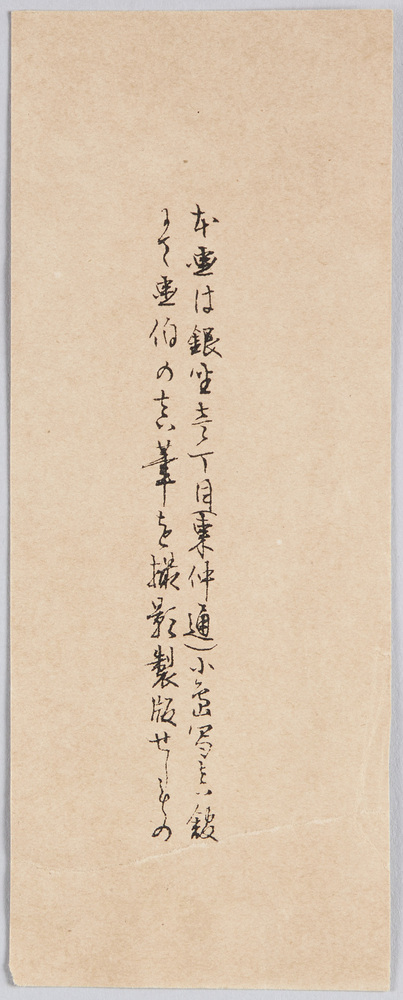 本画は銀座壱丁目(東仲通)小島写真館
にて画伯の真筆を撮影製版せしもの